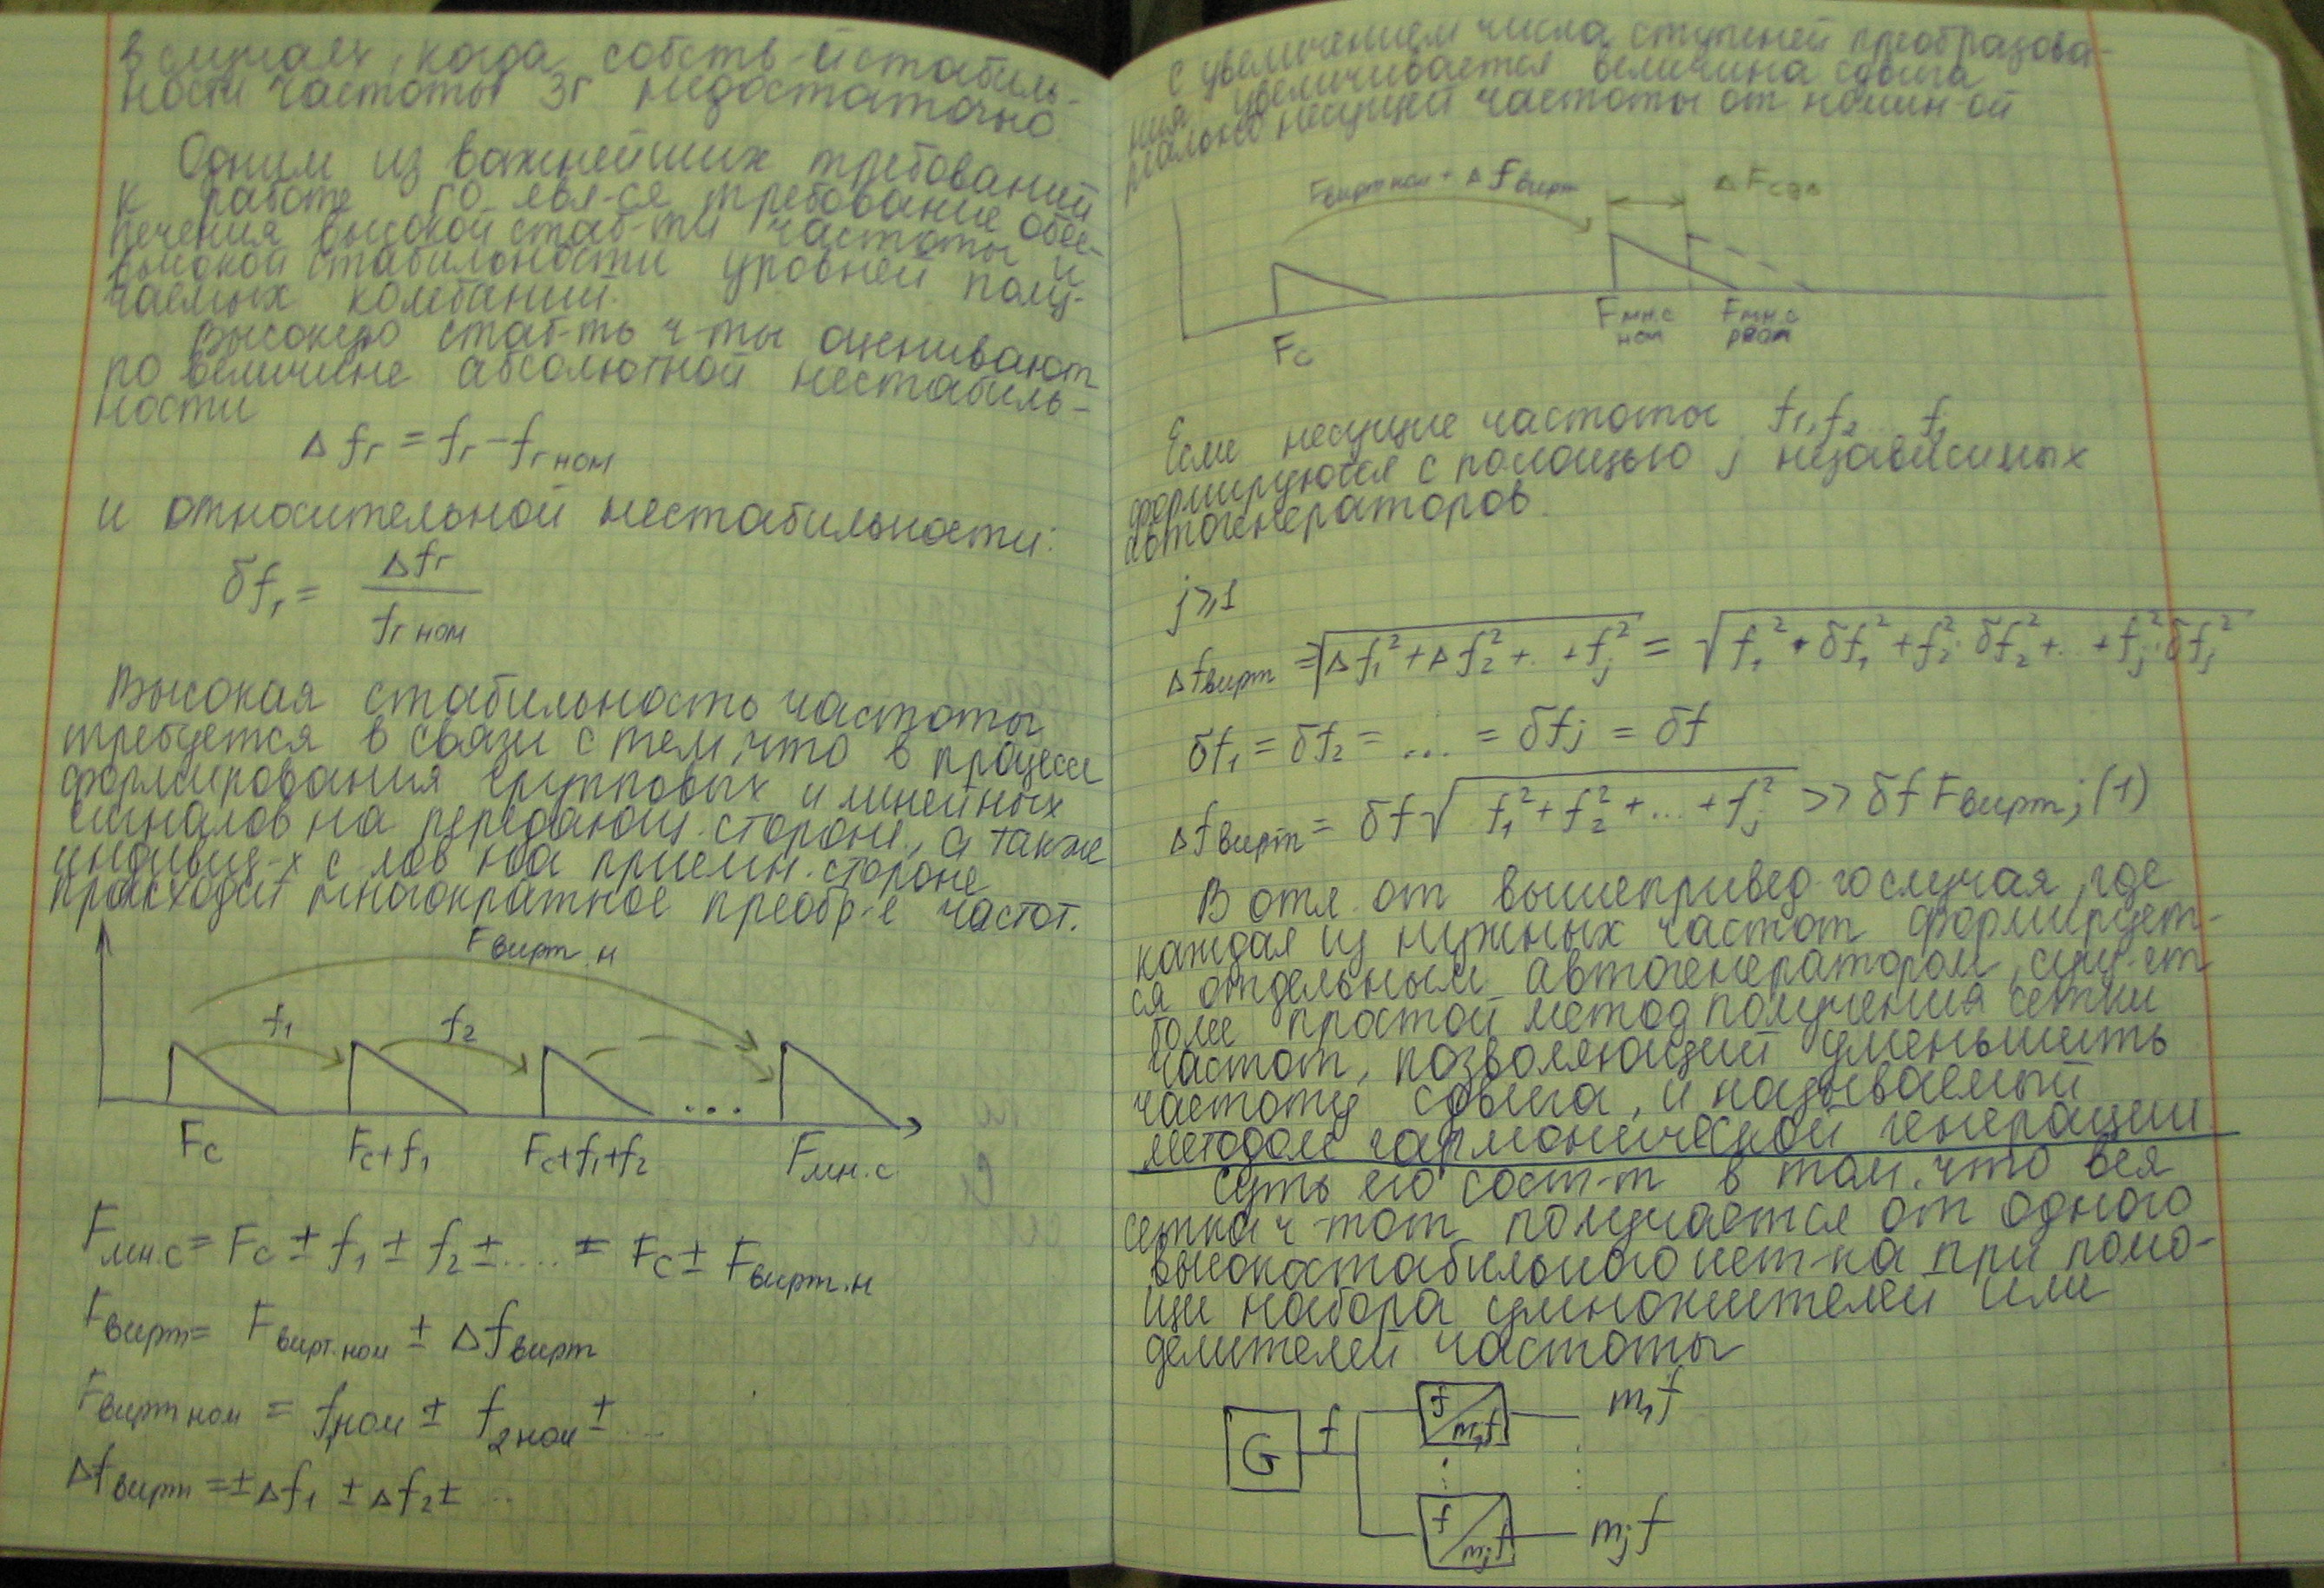 в случаях, когда собств-й стабиль-
ности частоты ЗГ недостаточно.
Одним из важнейших требований
к работе ГО явл-ся требование обес-
печения высокой стаб-ти частоты и
высокой стабильности уровней полу-
чаемых колебаний.
Высокую стаб-ть ч-ты оценивают
по величине абсолютной нестабиль-
ности
Δfг = fг - fг ном
и относительной нестабильности:
δfг = Δfг / fг ном
Высокая стабильность частоты
требуется в связи с тем, что в процессе
формирования групповых и линейных
сигналов на передающ. стороне, а также
индивид-х с-лов на приемн. стороне
происходит многократное преобр-е частот.
Fвирт.н
f1 f2
Fc Fc+f1 Fc+f1+f2 ... Fмн.с
Fмн.с = Fc ± f1 ± f2 ± .... = Fc ± Fвирт.н
Fвирт = Fвирт.ном ± Δfвирт
Fвирт ном = f1ном ± f2ном ± ...
Δfвирт = ±Δf1 ± Δf2 ± ...
С увеличением числа ступеней преобразова-
ния увеличивается величина сдвига
реально несущей частоты от номин-ой
Fвирт ном + Δfвирт ΔFсдв
Fc Fмн.с ном Fмн.с реал
Если несущие частоты f1, f2 ... fj
формируются с помощью j независимых
автогенераторов.
j ⩾ 1
Δfвирт = √(Δf1² + Δf2² + .. + fj²) = √(f1² · δf1² + f2² · δf2² + .. + fj² · δfj²)
δf1 = δf2 = ... = δfj = δf
Δfвирт = δf √(f1² + f2² + ... + fj²) >> δf Fвирт; (1)
В отл. от вышепривед-го случая, где
каждая из нужных частот формирует-
ся отдельным автогенератором, сущ-ет
более простой метод получения сетки
частот, позволяющий уменьшить
частоту сдвига, и называемый
методом гармонической генерации.
Суть его сост-т в том, что вся
сетка ч-тот получается от одного
высокостабильного ист-ка при помо-
щи набора умножителей или
делителей частоты
G f f/m1f m1f
f/mjf mjf